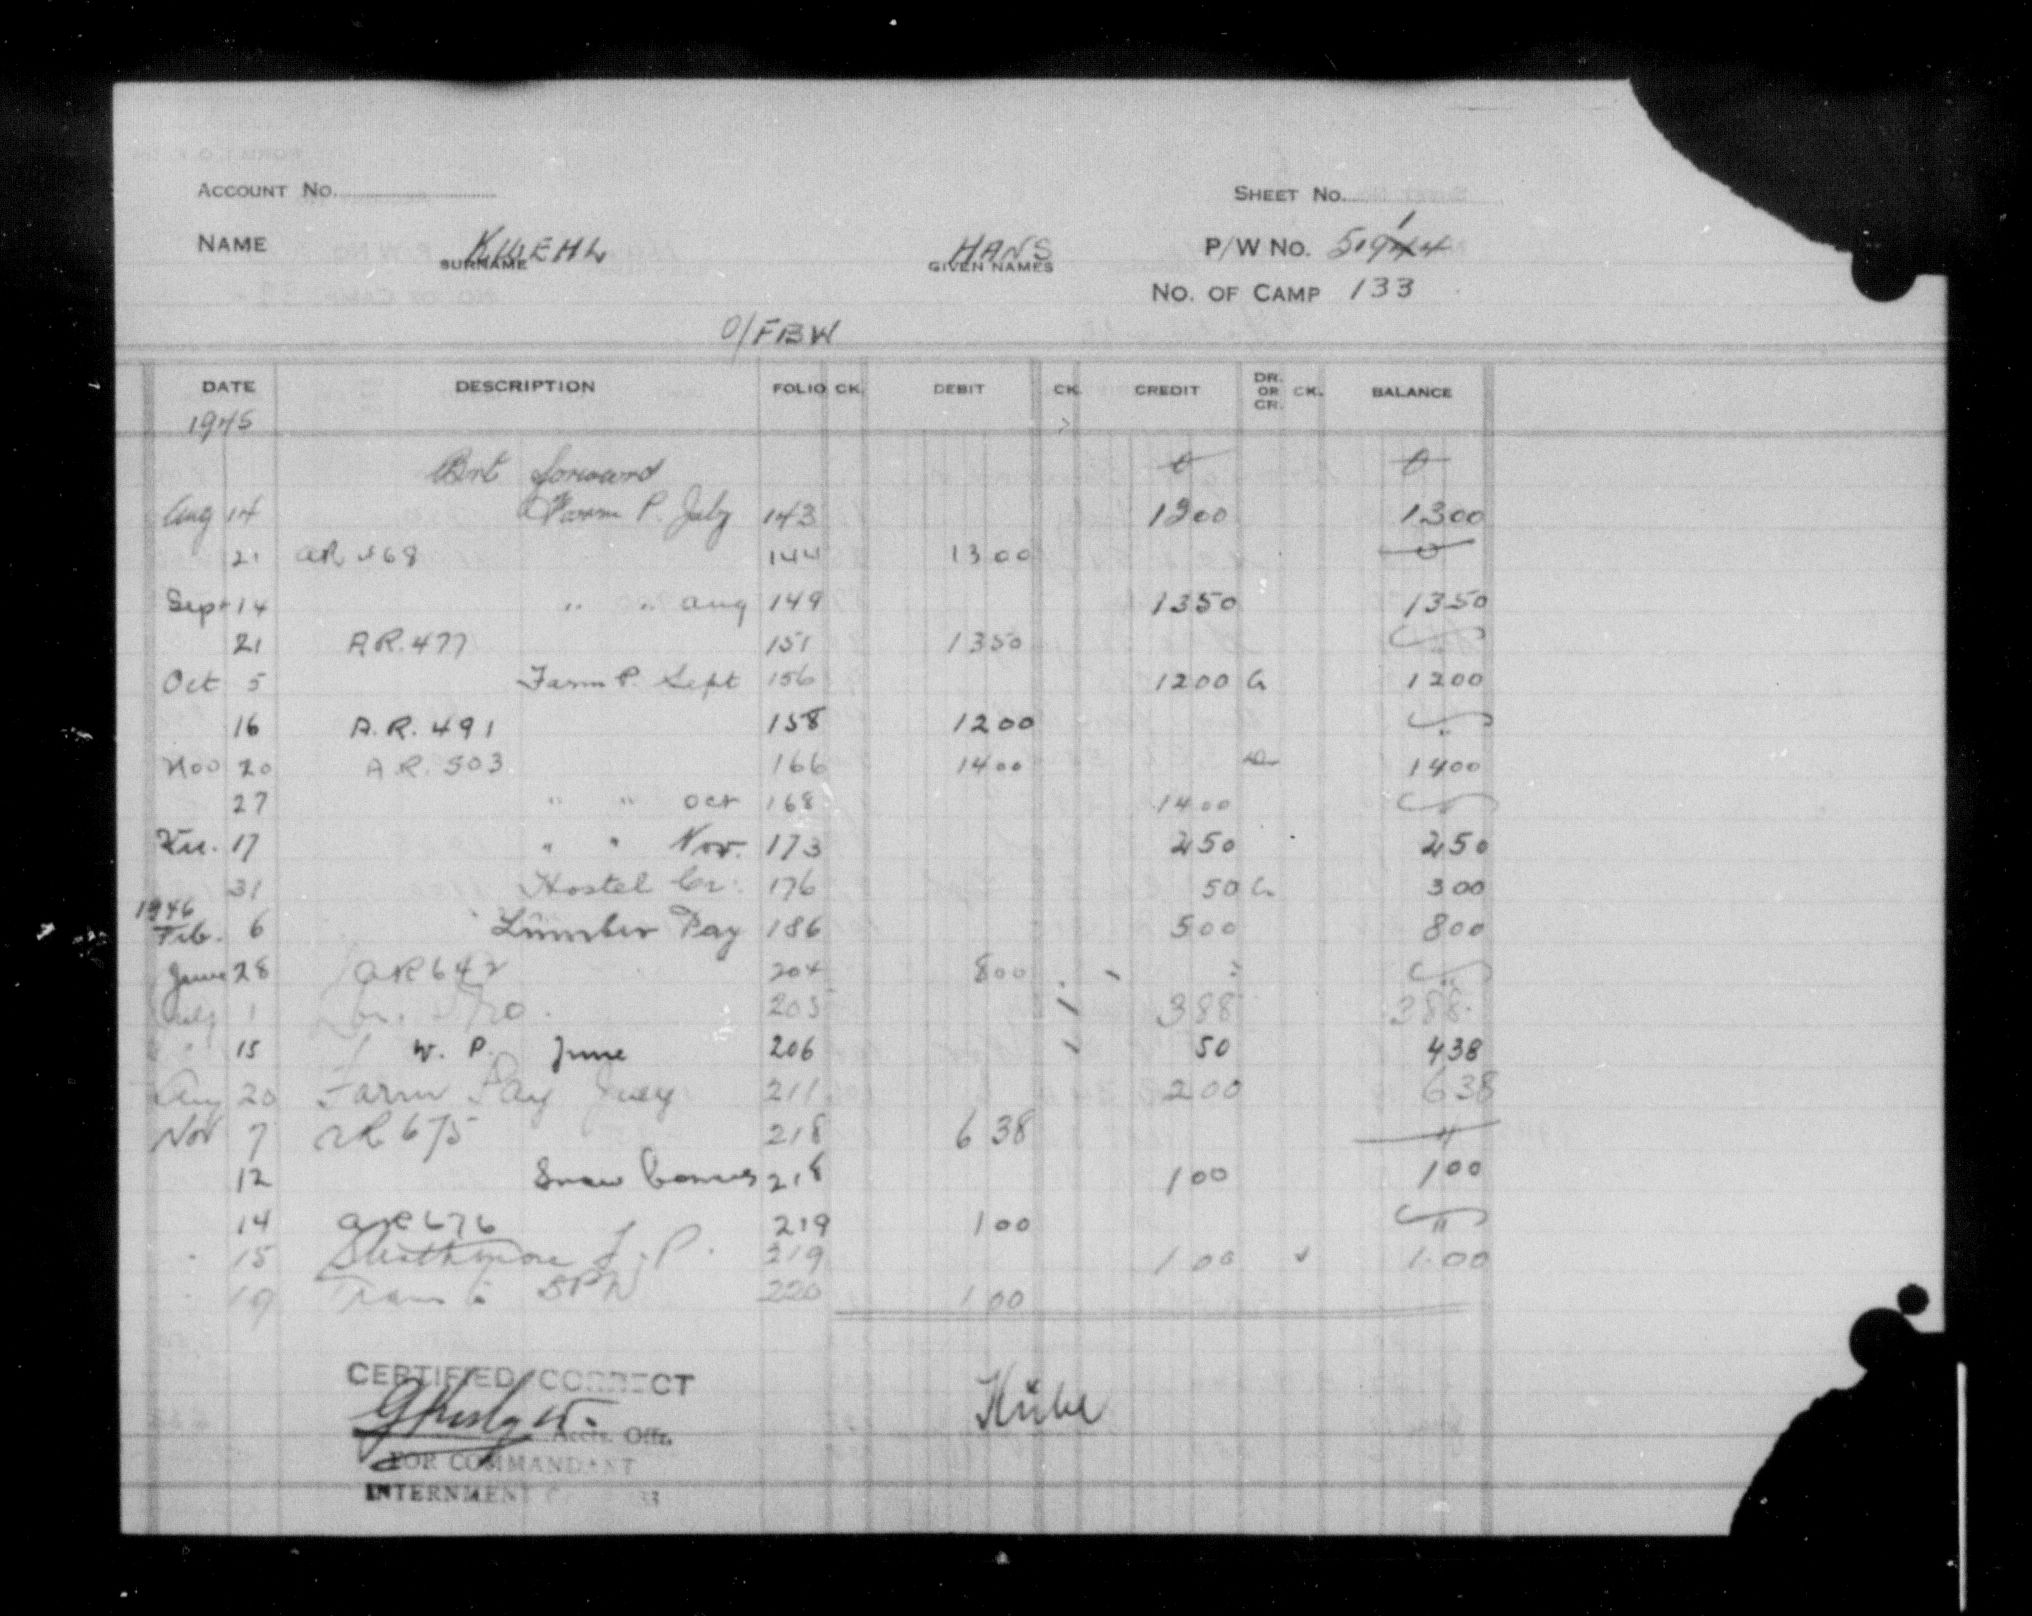 ACCOUNT NO.
SHEET NO.
NAME KUEHL HANS P/W NO. 5194
SURNAME GIVEN NAMES
NO. OF CAMP 133
O/FBW
DATE DESCRIPTION FOLIO CK. DEBIT CK. CREDIT DR. OR CR. CK. BALANCE
1945
Brt forward 0 0
Aug 14 Farm P. July 143 1300 1300
21 AR 468 144 1300 0
Sept 14 " " Aug 149 1350 1350
21 A.R. 477 151 1350
Oct 5 Farm P. Sept 156 1200 Cr 1200
16 A.R. 491 158 1200
Nov 20 A.R. 503 166 1400 Dr 1400
27 " " Oct 168 1400
17 " " Nov. 173 250 250
31 Hostel Cr. 176 50 Cr. 300
1946
Feb. 6 Lumber Pay 186 500 800
June 28 AR 642 204 800
July 1 205 388 388
" 15 W. P. June 206 50 438
Aug 20 Farm Pay July 211 200 638
Nov 7 AR 675 218 638
12 Snow bonus 218 100 100
14 AR 676 219 100
15 Strathmore F. P. 219 100 1.00
19 Trans to 220 100
CERTIFIED CORRECT
Accts. Offr.
FOR COMMANDANT
INTERNMENT C 33